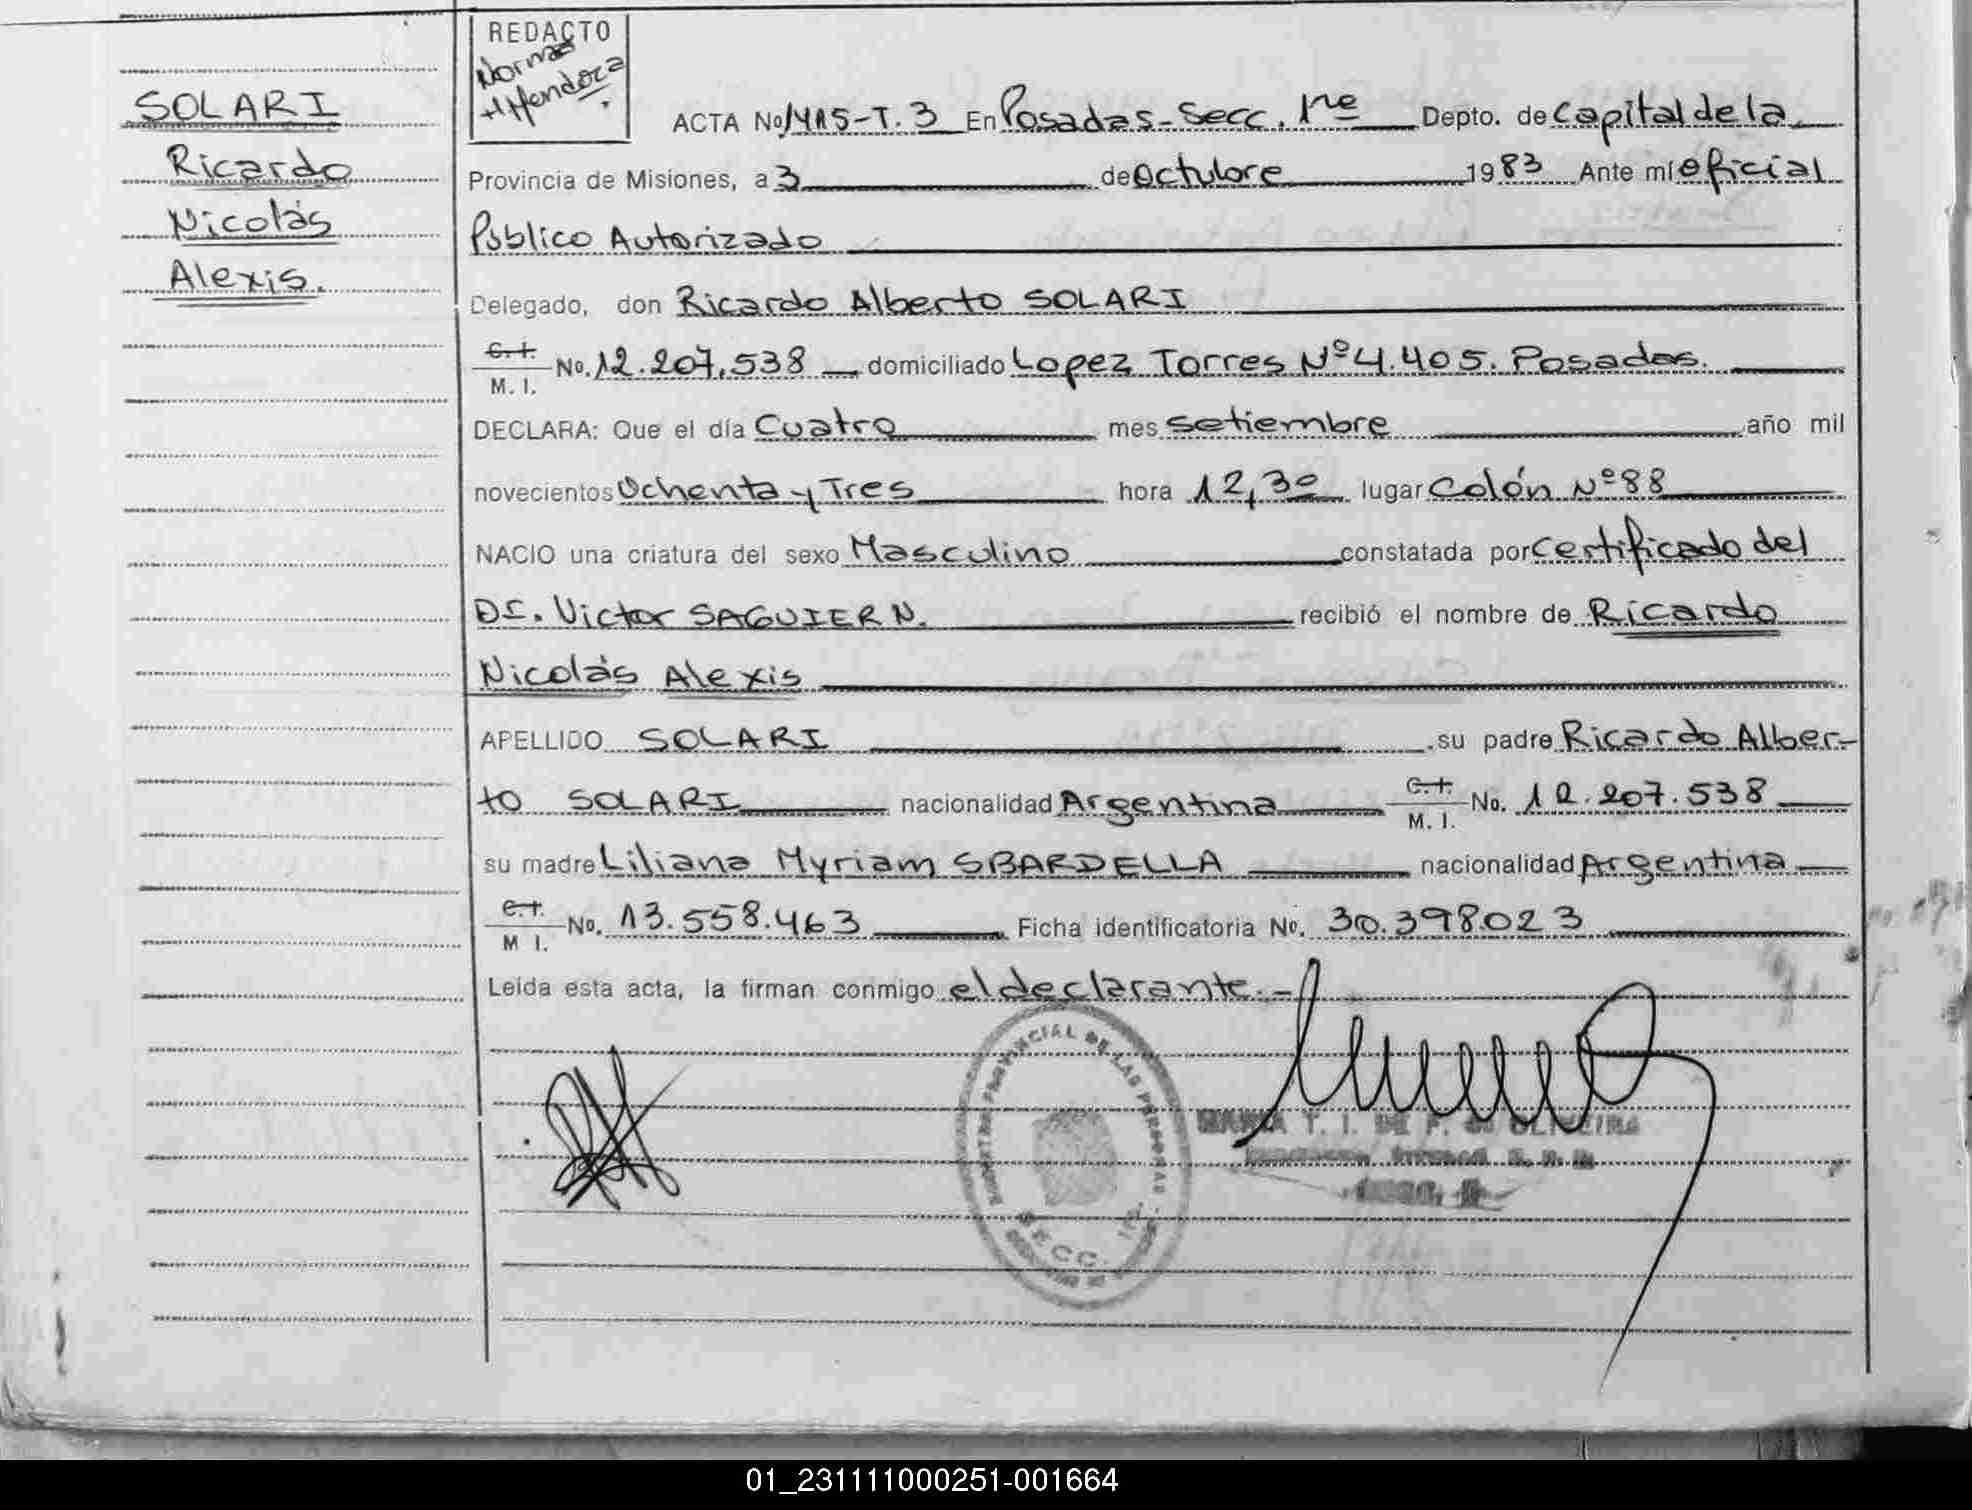 REDACTO
Norma
H Mendoza
SOLARI
Ricardo
Nicolás
Alexis.
ACTA No 1415-T.3 En Posadas-Secc. 1ra Depto. de Capital de la
Provincia de Misiones, a 3 de Octubre 1983 Ante mí Oficial
Público Autorizado
Delegado, don Ricardo Alberto SOLARI
C.I.
M. I. No. 12.207.538 domiciliado Lopez Torres Nº 4.405. Posadas.
DECLARA: Que el día Cuatro mes Setiembre año mil
novecientos Ochenta y Tres hora 12,30 lugar Colón Nº 88
NACIO una criatura del sexo Masculino constatada por Certificado del
Dr. Victor SAGUIER N. recibió el nombre de Ricardo
Nicolás Alexis
APELLIDO SOLARI su padre Ricardo Alber-
to SOLARI nacionalidad Argentina C.I.
M. I. No. 12.207.538
su madre Liliana Myriam SBARDELLA nacionalidad Argentina
C.I.
M I. No. 13.558.463 Ficha identificatoria No. 30.398.023
Leída esta acta, la firman conmigo el declarante.-
PROVINCIAL DE LAS PERSONAS
SECC. 1ra.
MARIA T. I. DE F. de OLIVEIRA
01_231111000251-001664